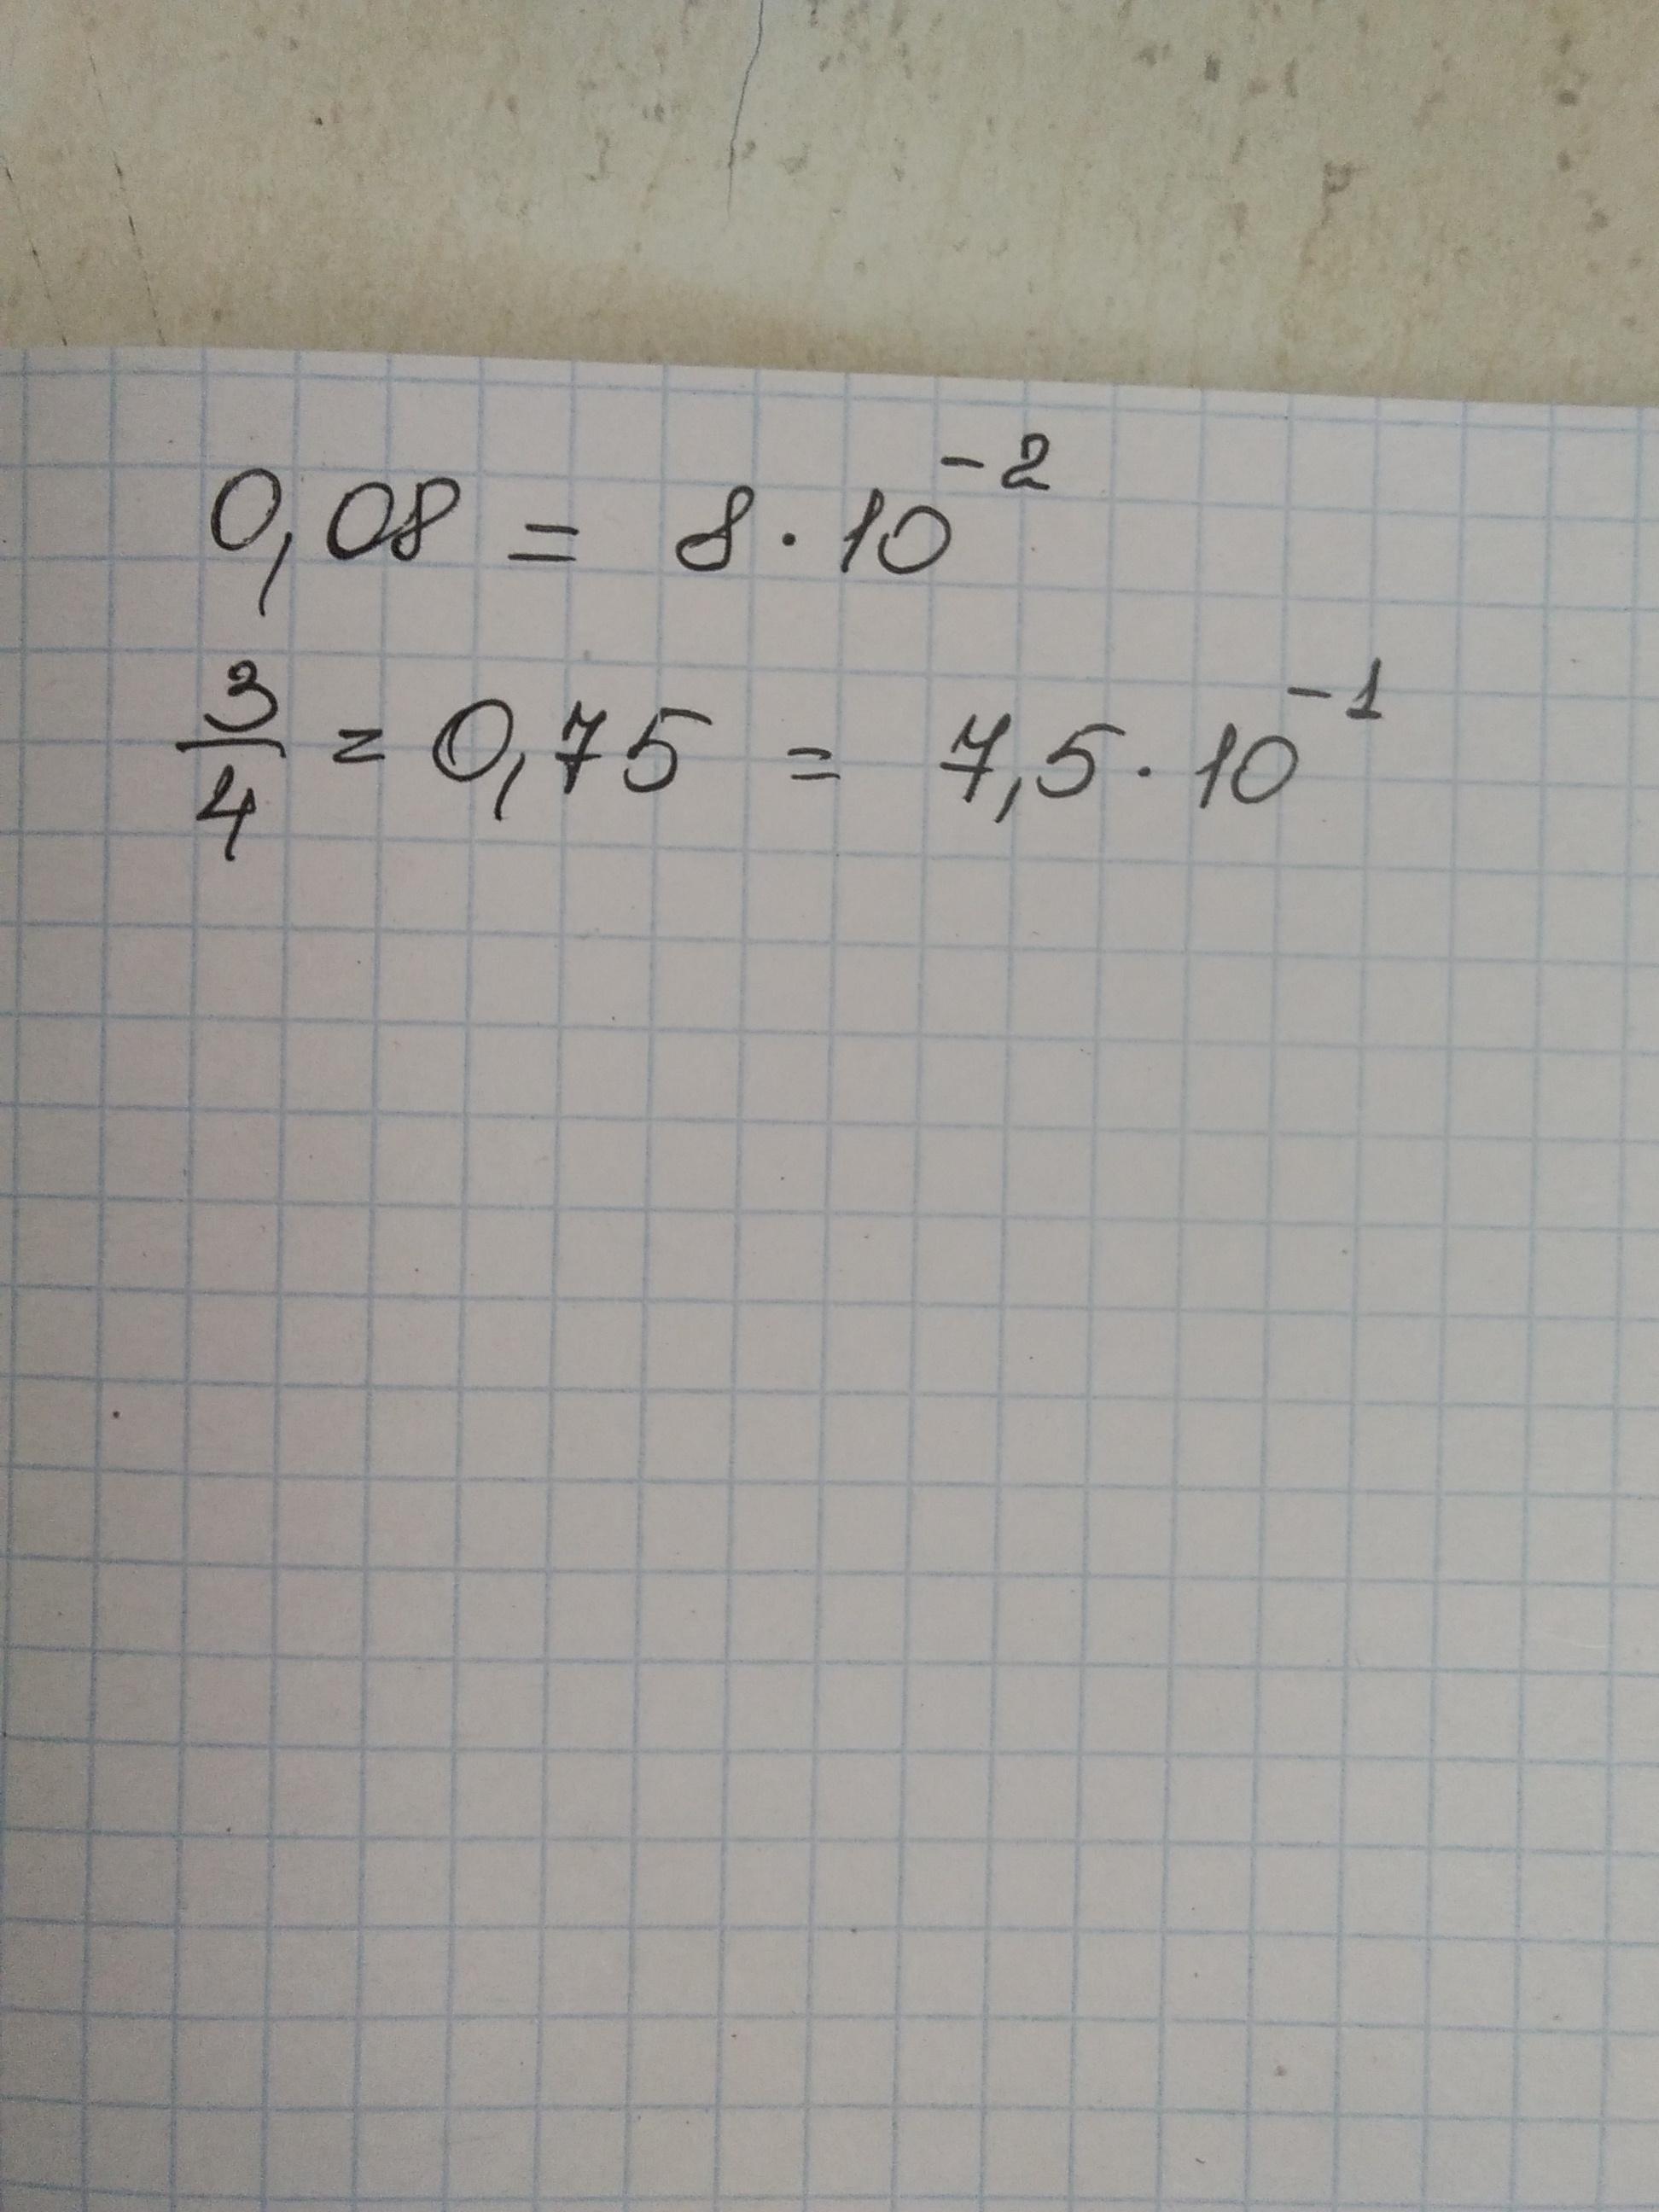 0,08 = 8 · 10⁻²
3/4 = 0,75 = 7,5 · 10⁻¹